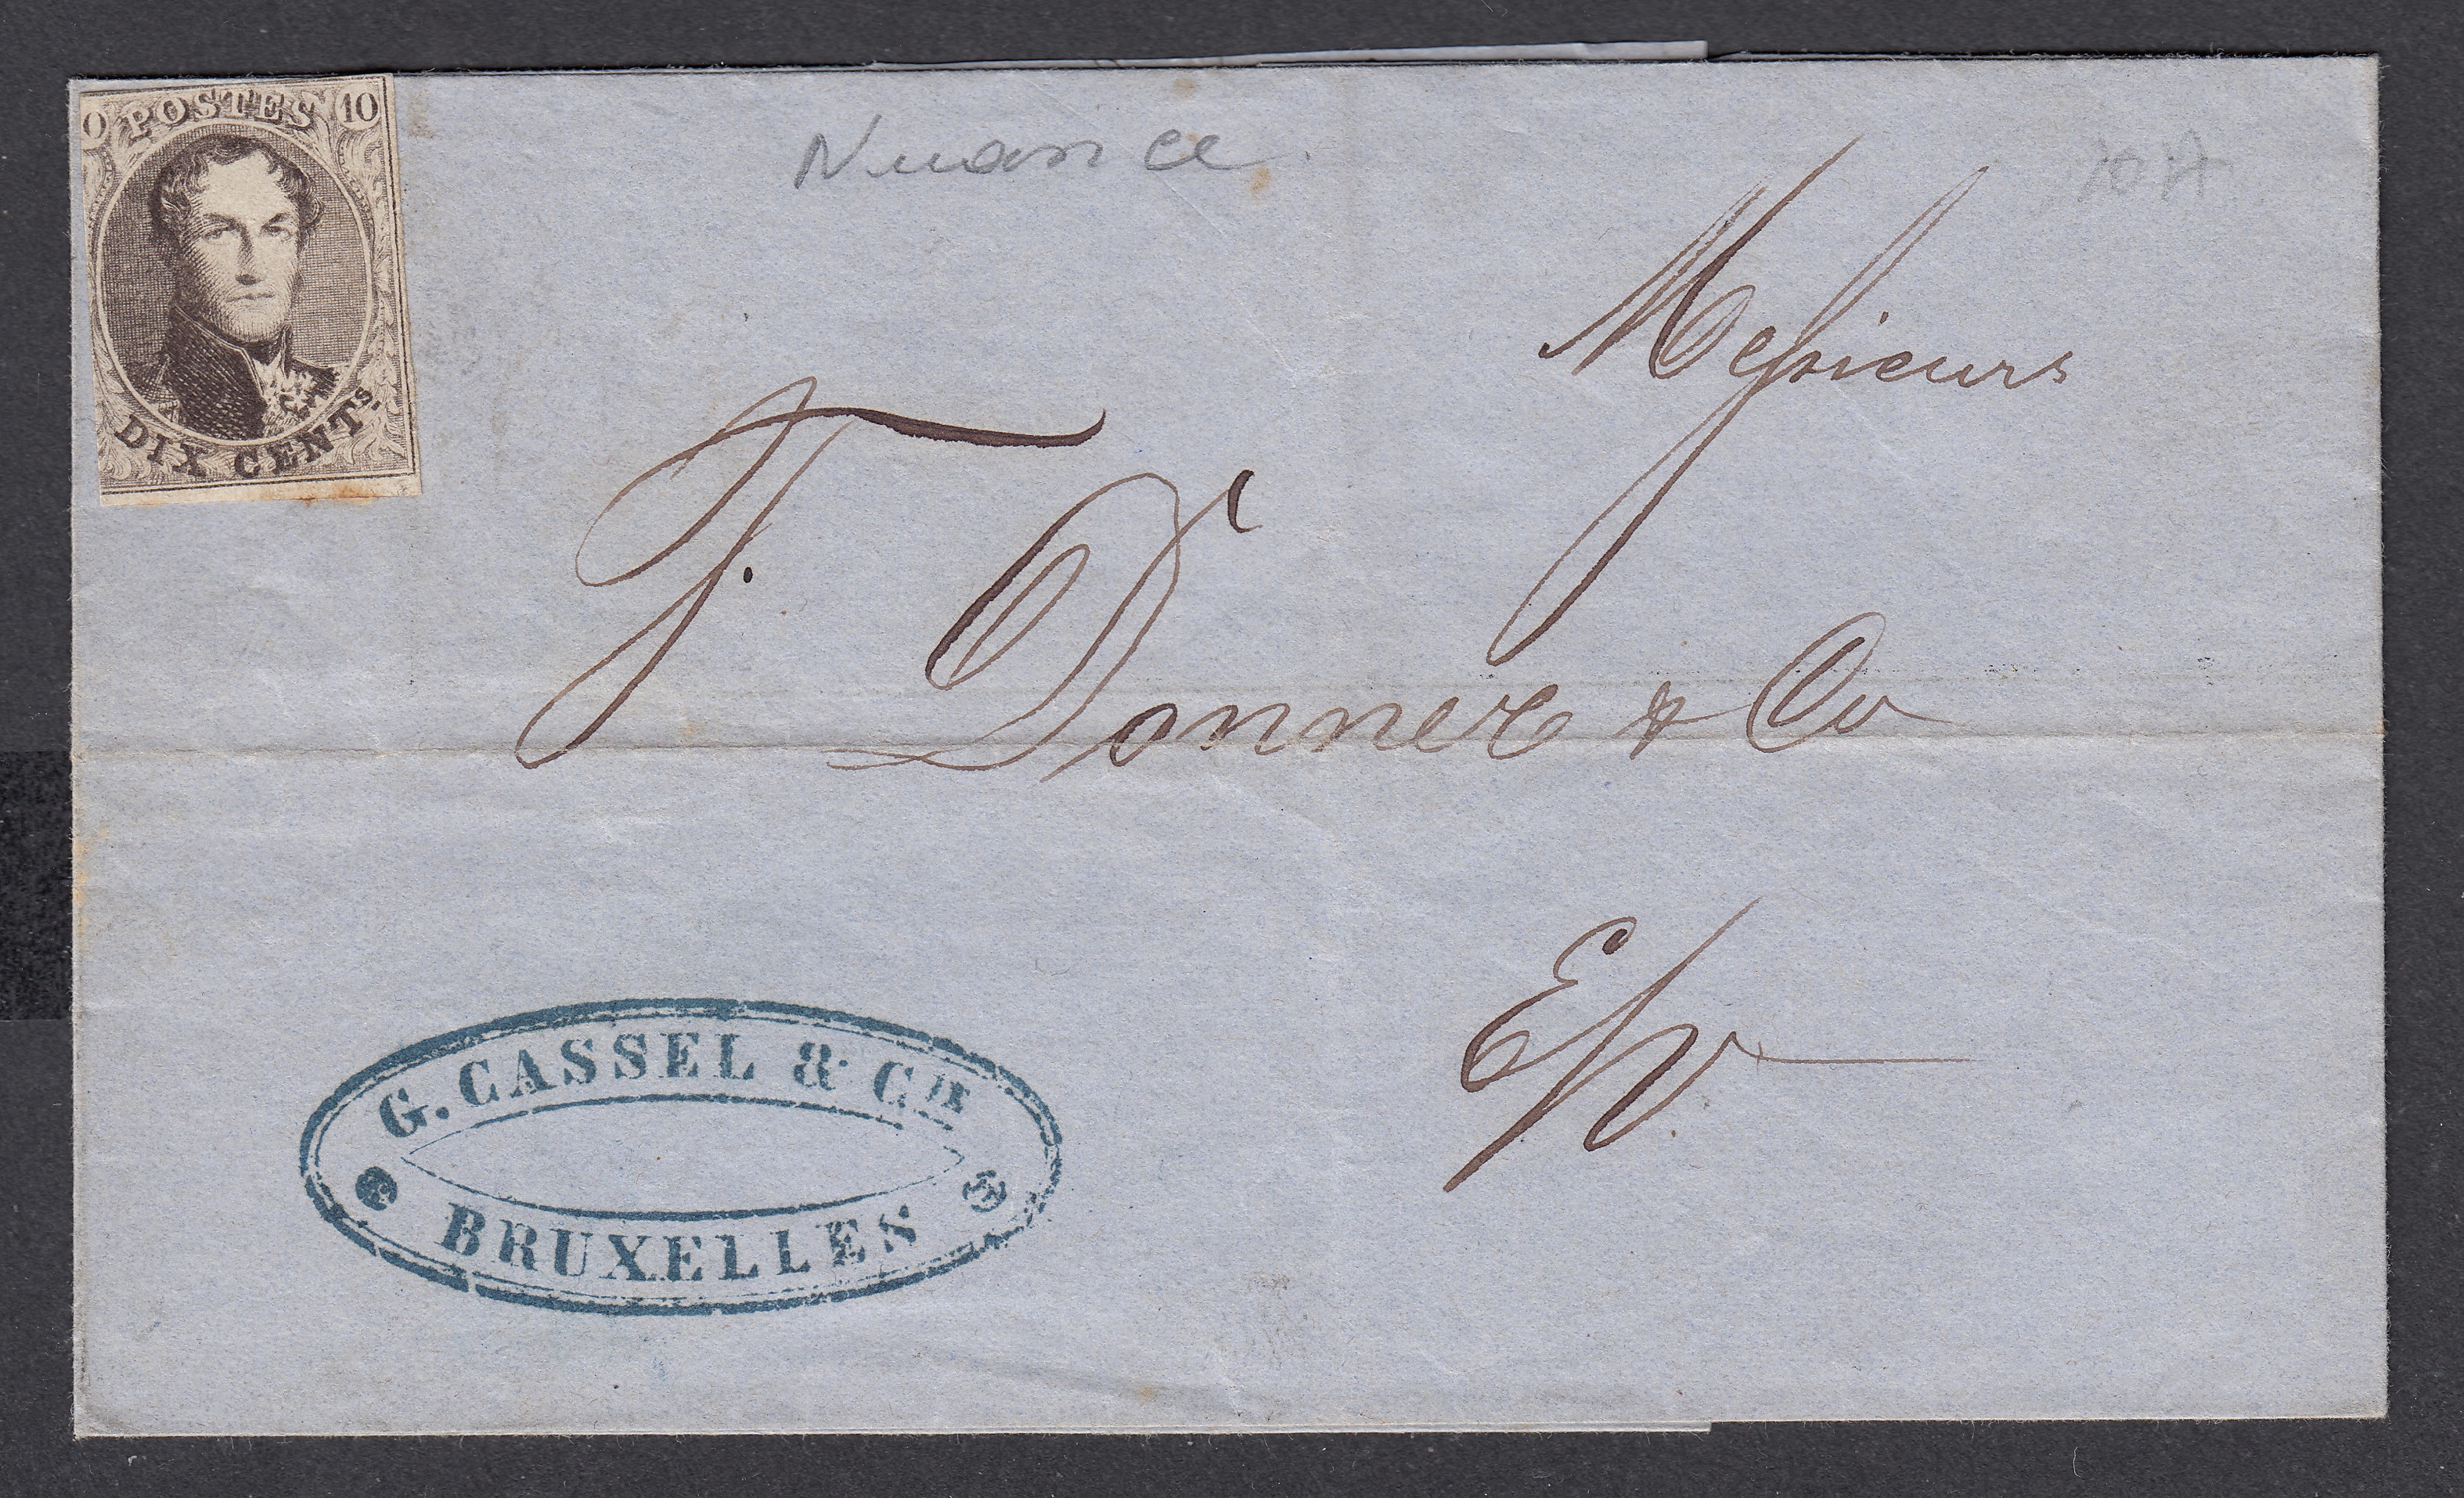 10 POSTES 10
DIX CENTs.
Nuance
10A
Messieurs
F. Donner & Co
E/V
G. CASSEL & CIE
BRUXELLES